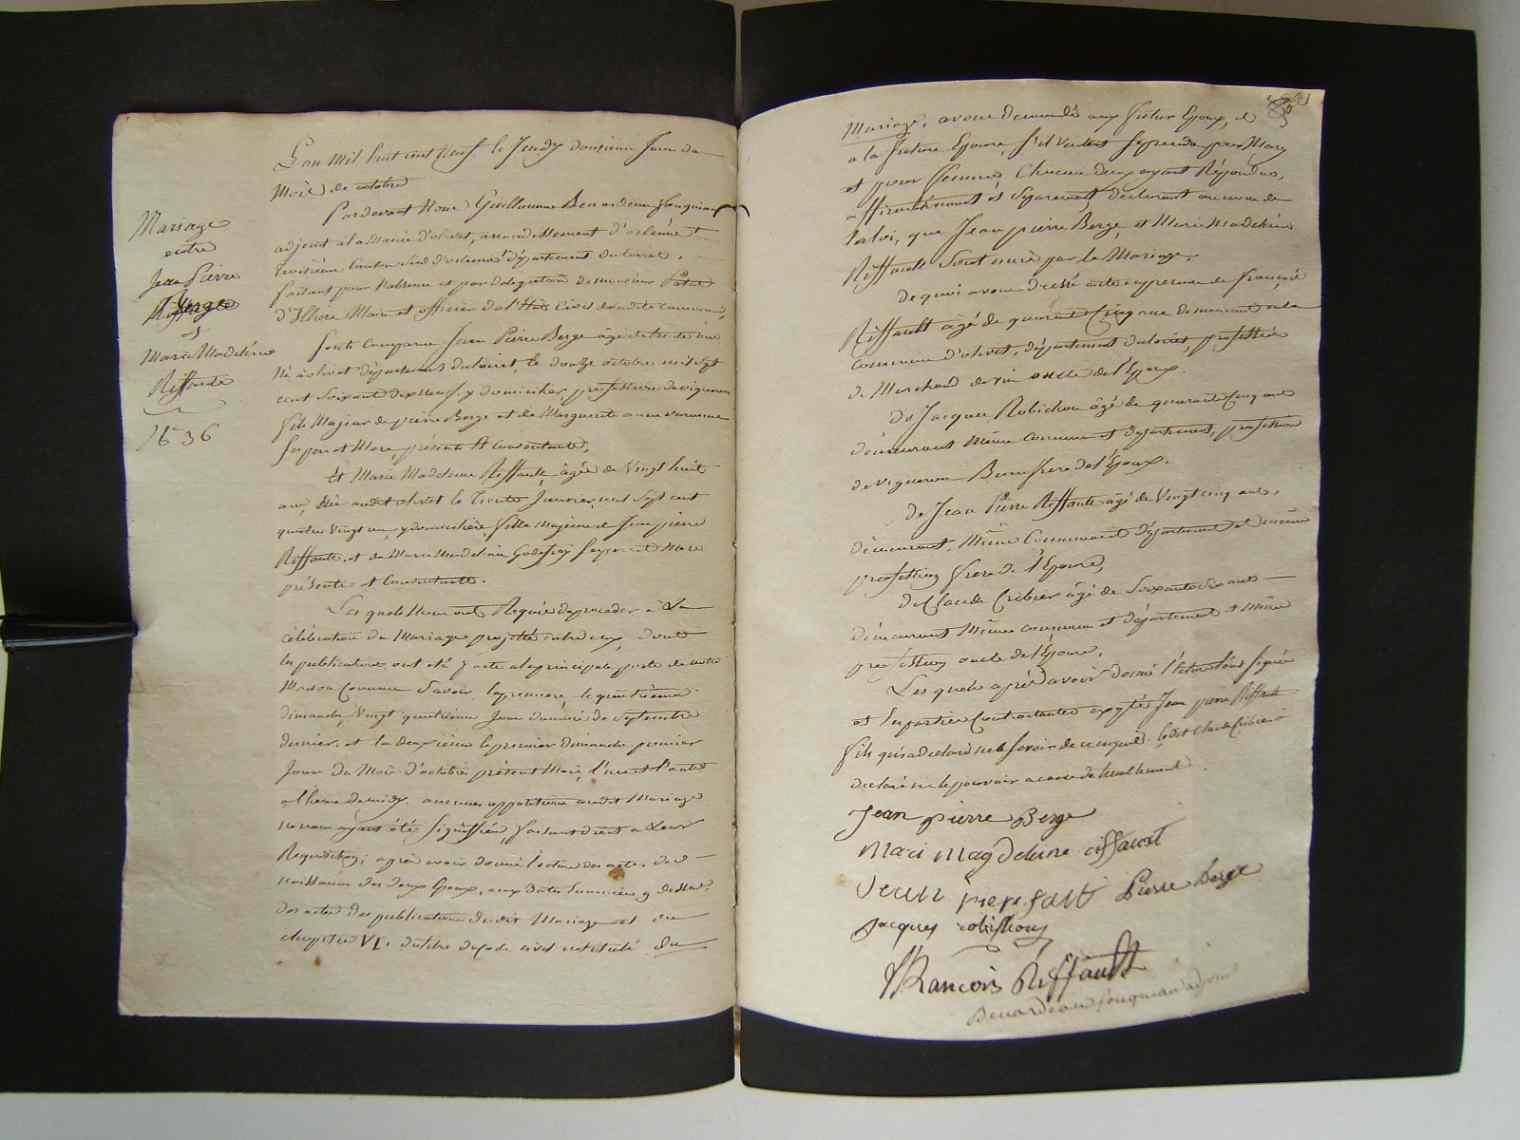 Mariage
entre
Jean Pierre
Berge
&
Marie Madeleine
Riffault
1636
L'an mil huit cent neuf le Jeudy douzieme Jour du
Mois de octobre
Pardevant Nous Guillaume Benardeau fouqueau
adjoint à la Mairie d'olivet, arrondissement d'orléans
troisième Canton Sud d'orleans département du Loiret,
faisant pour l'absence et par délégation de monsieur
d'Illiers Maire et officier de l'Etat Civil de ladite commune,
Sont Comparus Jean Pierre Berge âgé de trente ans
Né à olivet département du loiret, le douze octobre mil Sept
cent Soixante dix neuf, y domicilié, profession de vigneron
fils Majeur de pierre Berge et de Marguerite anne
Ses pere et Mere, présents et Consentants,
Et Marie Madeleine Riffault âgée de Vingt huit
ans, Née audit olivet le Trente Janvier mil Sept cent
quatre Vingt un, y domiciliée, fille majeure de Jean pierre
Riffault, et de Marie Madeleine Godefroy Ses pere et Mere
présents et Consentants.
Les quels Nous ont Requis de proceder à La
célébration du Mariage projetté entre eux, dont
les publications ont été faites a la principale porte de notre
Maison Commune Savoir, la premiere, le quatrième
dimanche, Vingt quatrieme Jour du mois de Septembre
dernier, et la deuxieme le premier dimanche, premier
Jour du Mois d'octobre présent Mois, l'une et l'autre
a l'heure de midy. aucunes oppositions audit Mariage
ne nous ayant été Signiffiées, faisant droit a Leur
Requisition; après avoir donné lecture des actes de
naissances des deux Epoux, aux dates enoncées cy dessus,
des actes des publications dudit Mariage et du
chapitre VI. du titre du Code civil intitulé du
Mariage; avons Demandé aux futur Epoux, et
a la future Epouse, S'il veulent Se prendre pour Mary
et pour femme, Chacun deux ayant Répondus,
affirmativement et Separement, déclarons au nom de
la loi, que Jean pierre Berge, et Marie Madeleine
Riffault Sont unis par le Mariage.
De quoi avons dressé acte en presence de françois
Riffault âgé de quarante Cinq ans demeurant en la
commune d'olivet, département du loiret, profession
de Marchand de vin oncle de l'Epoux.
de Jacques Robichon âgé de quarante Cinq ans
demeurant même commune et département, profession
de vigneron Beau frere de l'Epoux.
de Jean Pierre Riffault âgé de Vingt cinq ans,
demeurant, Même Commune et département et même
profession frere de l'Epouse,
de Claude Cribier âgé de Soixante six ans
demeurant Même commune et département et même
profession oncle de l'Epouse.
Les quels après avoir donné lecture l'ont Signé
et les parties Contractantes excepté Jean pierre Riffault
fils qui a declaré ne le Savoir de ce enquis. Ledit Claude Cribier a
declaré ne le pouvoir a cause de tremblement
Jean pierre Berge
Mari magdeleine riffault
Jean Pierre Berge
Jacques robichon
François Riffault
Benardeau fouqueau adjoint